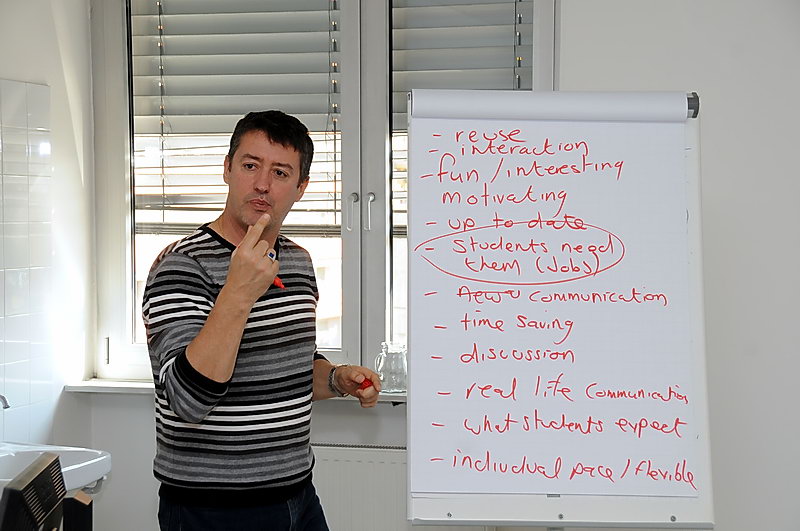 - reuse
- interaction
- fun / interesting
motivating
- up to date
- students need
them (Jobs)
- communication
- time saving
- discussion
- real life communication
- what students expect
- individual pace / flexible